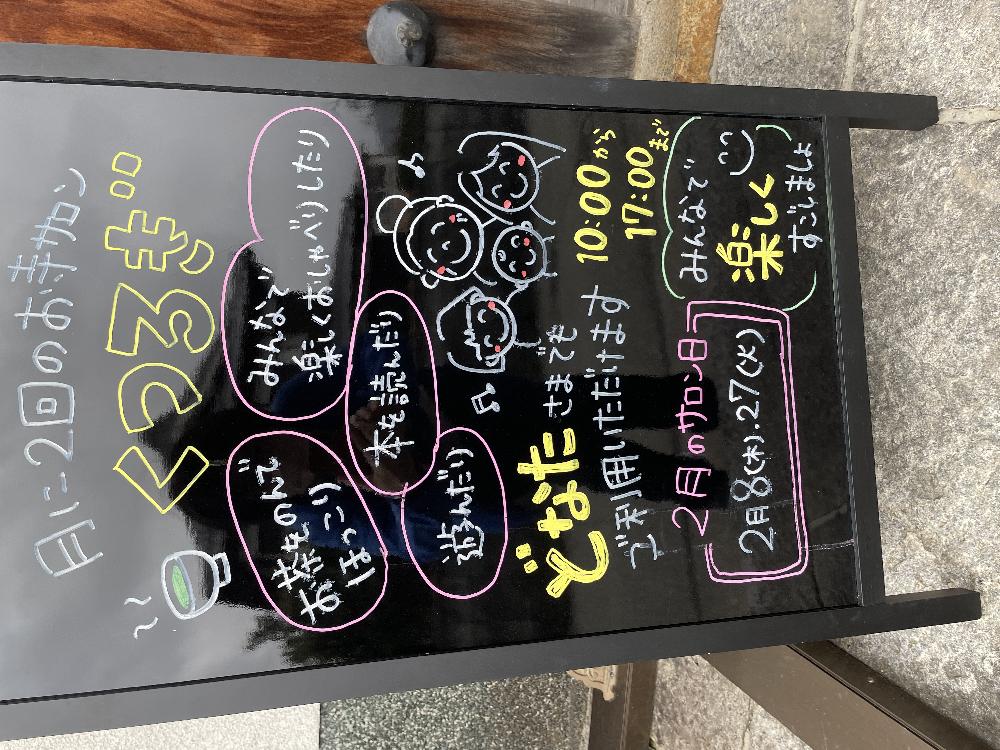 月に2回のお寺サロン
くつろぎ
お茶をのんで
ほっこり
みんなで
楽しくおしゃべりしたり
本を読んだり
遊んだり
どなたさまでも
ご利用いただけます
10:00から
17:00まで
2月のサロン日
2月8(木).27(火)
みんなで
楽しく
すごしましょ